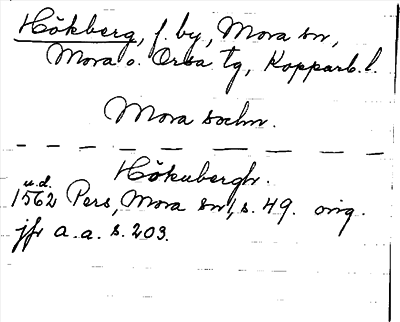 Hökberg, f. by, Mora sn,
Mora o. Orsa tg, Kopparb. l.
Mora sochn.
Hökubergh.
u.d.
1562 Pers, Mora sn, s. 49. orig.
jfr a.a. s. 203.